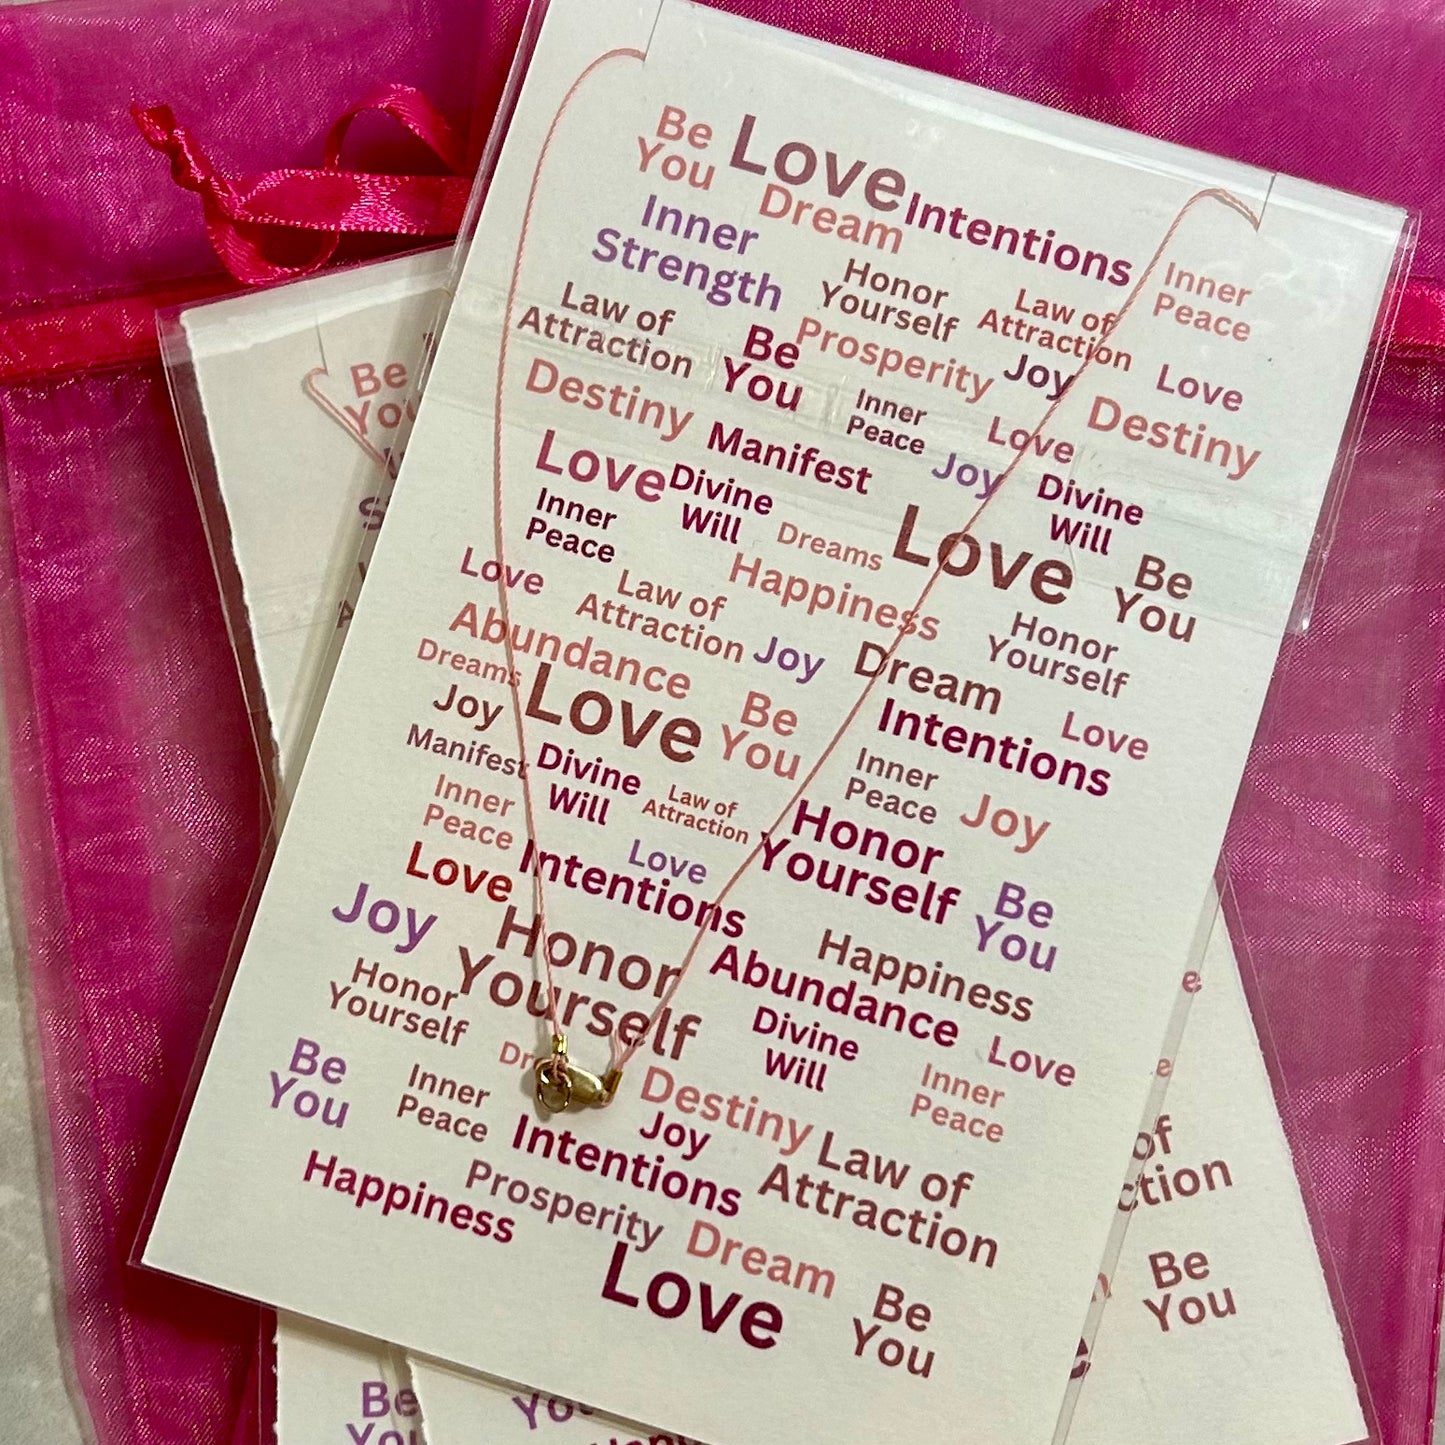 Be
You
Love
Dream
Intentions
Inner
Strength
Honor
Yourself
Law of
Attraction
Inner
Peace
Law of
Attraction
Be
You
Prosperity
Joy
Love
Destiny
Manifest
Inner
Peace
Love
Destiny
Love
Divine
Will
Joy
Divine
Will
Inner
Peace
Dreams
Love
Be
You
Love
Law of
Attraction
Happiness
Honor
Yourself
Abundance
Joy
Dream
Dreams
Love
Be
You
Intentions
Love
Joy
Manifest
Divine
Will
Law of
Attraction
Inner
Peace
Joy
Inner
Peace
Love
Honor
Yourself
Be
You
Love
Intentions
Joy
Honor
Yourself
Abundance
Happiness
Honor
Yourself
Divine
Will
Love
Be
You
Inner
Peace
Destiny
Inner
Peace
Intentions
Joy
Law of
Attraction
Happiness
Prosperity
Dream
Love
Be
You
Be
of
ction
Be
You
Be